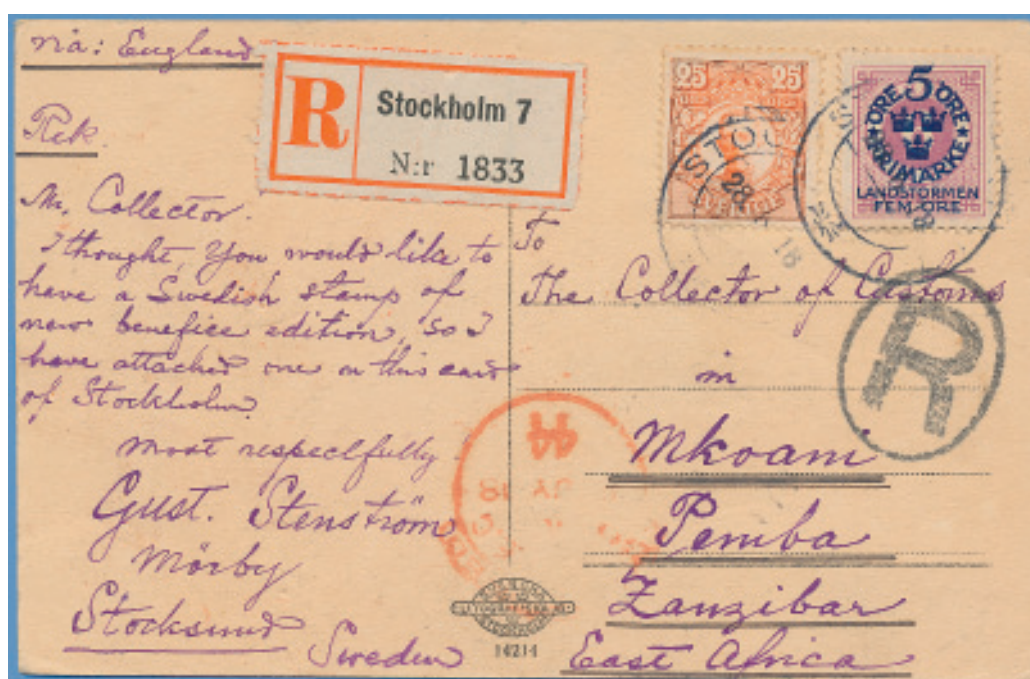 via: England
Rek.
R
Stockholm 7
N:r 1833
25 25
SVERIGE
5
ÖRE ÖRE
FRIMÄRKE
LANDSTORMEN
FEM ÖRE
28
18
Mr. Collector.
I thought, You would like to
have a Swedish stamp of
new benefice edition, so I
have attached one on this card
of Stockholm.
Most respectfully
Gust. Stenström
Mörby
Stocksund
Sweden
To
The Collector of Customs
in
Mkoani
Pemba
Zanzibar
East Africa
R
44
18
14214